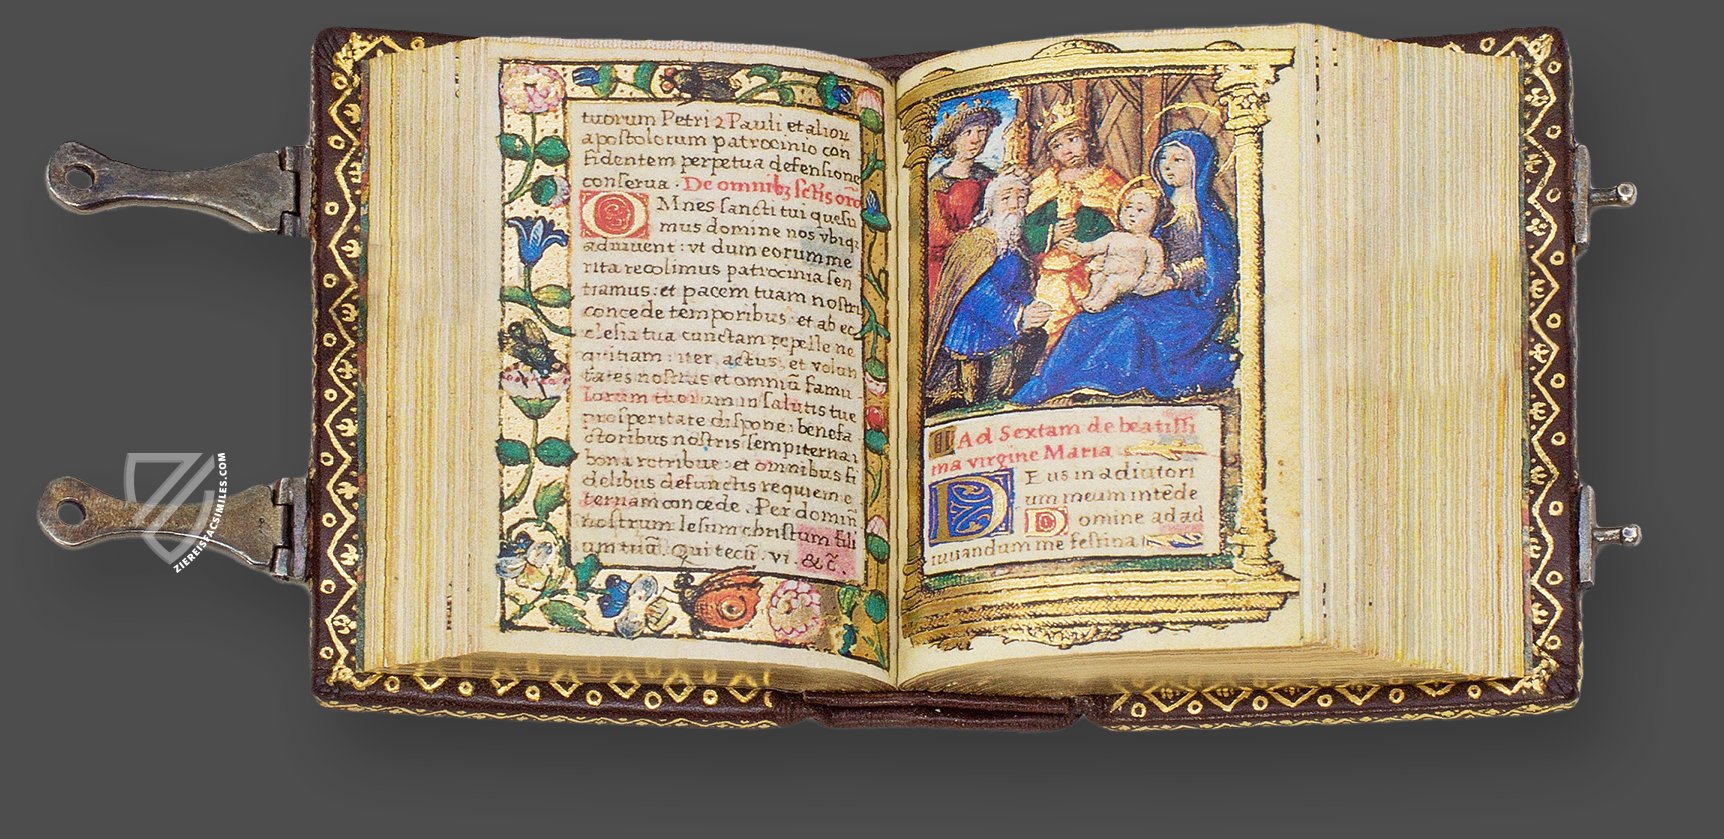 tuorum Petri 2 Pauli et aliorum
apostolorum patrocinio con
fidentem perpetua defensione
conserua. De omnibꝫ sctis oro
OMnes sancti tui quesu
mus domine nos vbiqꝫ
adiuuent: vt dum eorum me
rita recolimus patrocinia sen
tiamus: et pacem tuam nostris
concede temporibus: et ab ec
clesia tua cunctam repelle ne
quitiam: iter, actus, et volun
tates nostras et omniū famu
lorum tuorum in salutis tue
prosperitate dispone: benefa
ctoribus nostris sempiterna
bona retribue: et omnibus fi
delibus defunctis requiem e
ternam concede. Per dominū
nostrum Iesum christum fili
um tuū. Qui tecū. vi. &c̄.
Ad Sextam de beatissi
ma virgine Maria
Deus in adiutori
um meum intēde
Domine ad ad
iuuandum me festina
ZIEREISFACSIMILES.COM